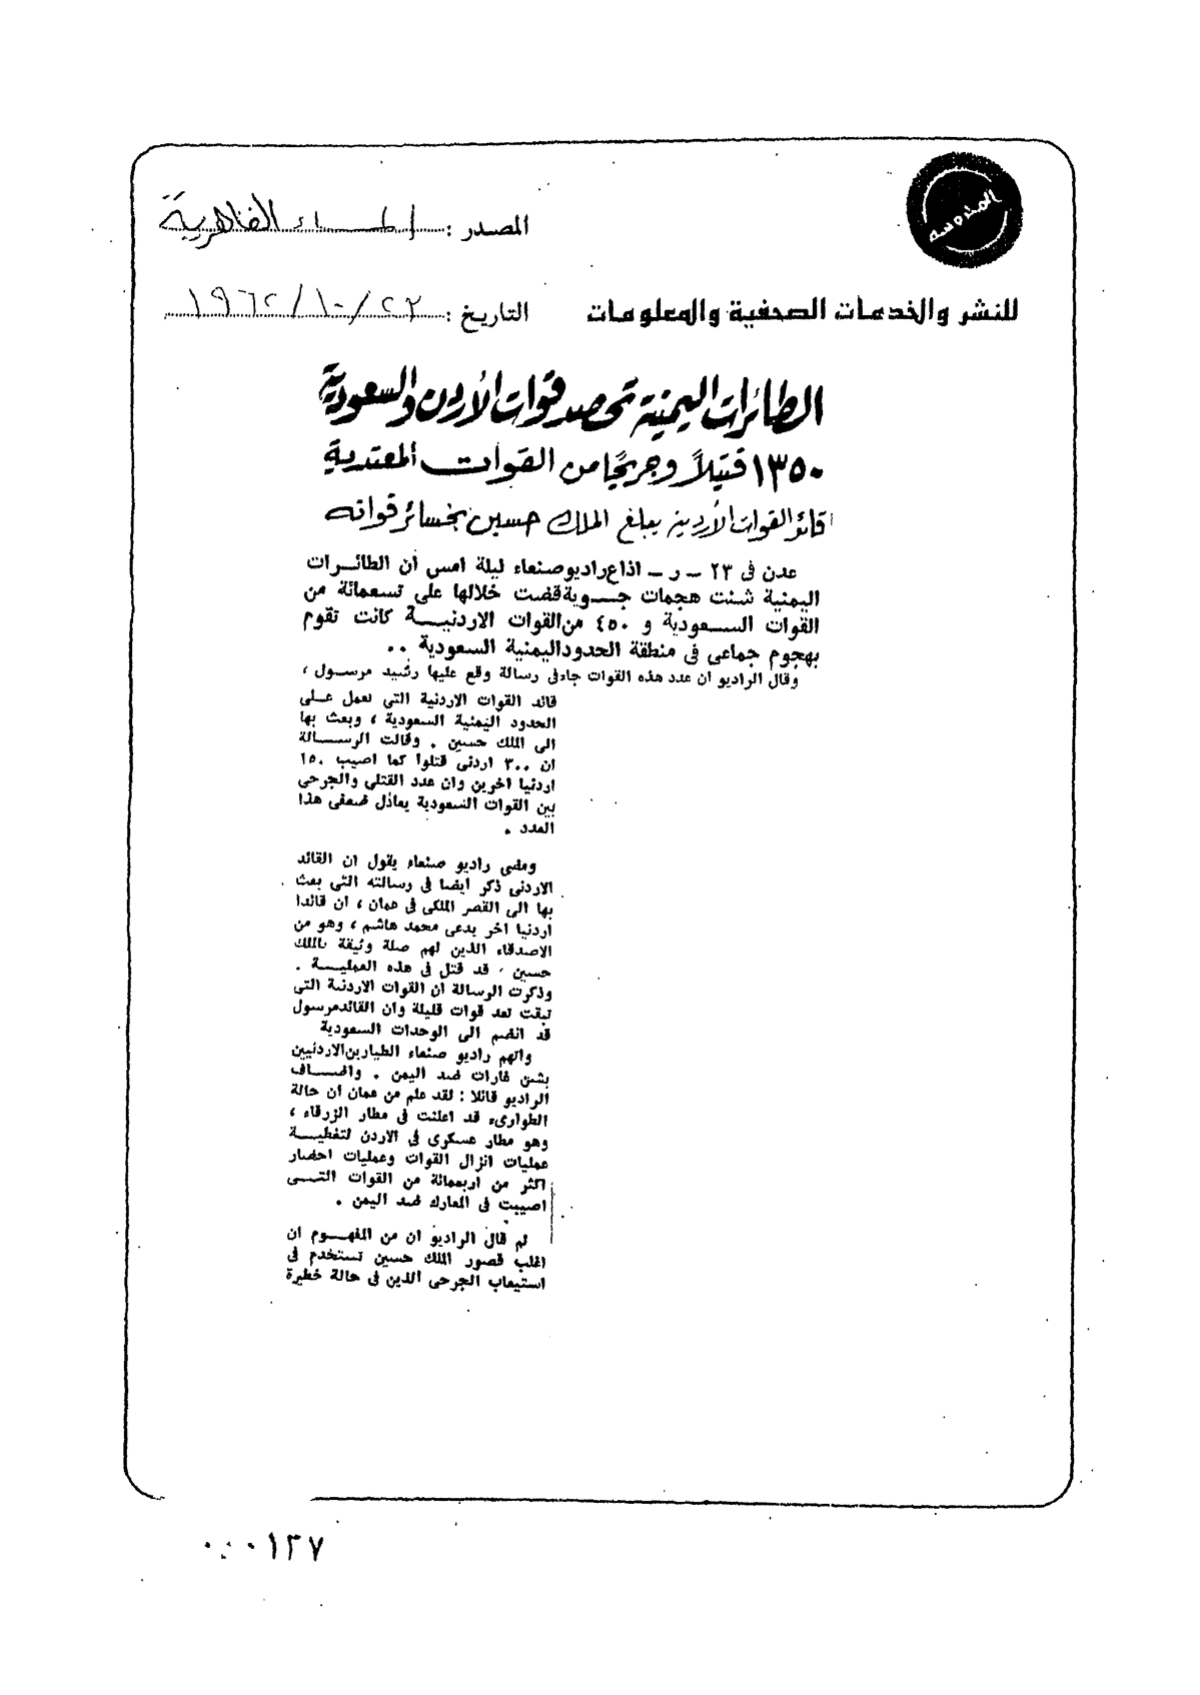 المحروسة
المصدر : المساء القاهرية
للنشر والخدمات الصحفية والمعلومات
التاريخ : ٢٣/١٠/١٩٦٢
الطائرات اليمنية تحصد قوات الأردن والسعودية
١٣٥٠ قتيلاً وجريحًا من القوات المعتدية
قائد القوات الأردنية يبلغ الملك حسين بخسائر قواته
عدن فى ٢٣ - ر - اذاع راديو صنعاء ليلة امس أن الطائرات
اليمنية شنت هجمات جوية قضت خلالها على تسعمائة من
القوات السعودية و ٤٥٠ من القوات الاردنية كانت تقوم
بهجوم جماعى فى منطقة الحدود اليمنية السعودية ..
وقال الراديو ان عدد هذه القوات جاء فى رسالة وقع عليها رشيد مرسول ،
قائد القوات الاردنية التى تعمل على
الحدود اليمنية السعودية ، وبعث بها
الى الملك حسين . وقالت الرسالة
ان ٣٠٠ اردنى قتلوا كما اصيب ١٥٠
اردنيا اخرين وان عدد القتلى والجرحى
بين القوات السعودية يعادل ضعفى هذا
العدد .
ومضى راديو صنعاء يقول ان القائد
الاردنى ذكر ايضا فى رسالته التى بعث
بها الى القصر الملكى فى عمان ، ان قائدا
اردنيا اخر يدعى محمد هاشم ، وهو من
الاصدقاء الذين لهم صلة وثيقة بالملك
حسين ، قد قتل فى هذه العملية .
وذكرت الرسالة ان القوات الاردنية التى
تبقت تعد قوات قليلة وان القائد مرسول
قد انضم الى الوحدات السعودية
واتهم راديو صنعاء الطيارين الاردنيين
بشن غارات ضد اليمن . واضاف
الراديو قائلا : لقد علم من عمان ان حالة
الطوارىء قد اعلنت فى مطار الزرقاء ،
وهو مطار عسكرى فى الاردن لتغطية
عمليات انزال القوات وعمليات احضار
اكثر من اربعمائة من القوات التى
اصيبت فى المعارك ضد اليمن .
ثم قال الراديو ان من المفهوم ان
اغلب قصور الملك حسين تستخدم فى
استيعاب الجرحى الذين فى حالة خطيرة